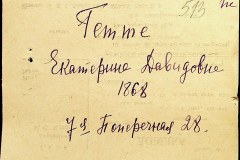 513
Гетте
Екатерине Давидовне
1868
7я Поперечная 28.